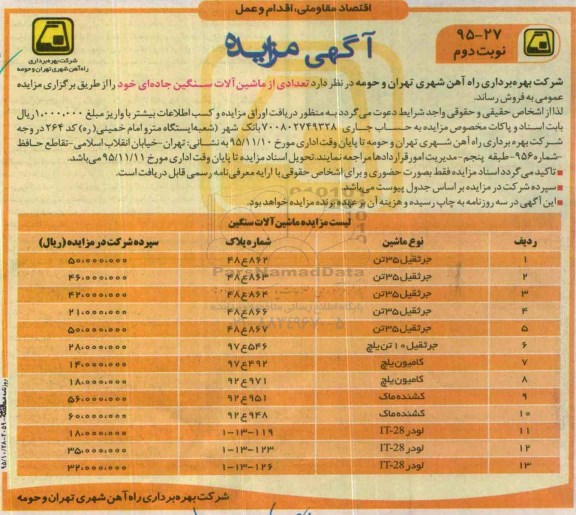 اقتصاد مقاومتی، اقدام و عمل
۹۵-۲۷
نوبت دوم
آگهی مزایده
شرکت بهره‌برداری
راه‌آهن شهری تهران و حومه
شرکت بهره‌برداری راه آهن شهری تهران و حومه در نظر دارد تعدادی از ماشین آلات سنگین جاده‌ای خود را از طریق برگزاری مزایده
عمومی به فروش رساند.
لذا از اشخاص حقیقی و حقوقی واجد شرایط دعوت می‌گردد به منظور دریافت اوراق مزایده و کسب اطلاعات بیشتر با واریز مبلغ ۱,۰۰۰,۰۰۰ ریال
بابت اسناد و پاکات مخصوص مزایده به حساب جاری ۷۰۰۸۰۲۷۴۹۳۲۸ بانک شهر (شعبه ایستگاه مترو امام خمینی (ره) کد ۲۶۴ در وجه
شرکت بهره برداری راه آهن شهری تهران و حومه تا پایان وقت اداری مورخ ۹۵/۱۱/۱۰ به نشانی: تهران-خیابان انقلاب اسلامی-تقاطع حافظ
-شماره ۹۵۶-طبقه پنجم-مدیریت امور قراردادها مراجعه نمایند. تحویل اسناد مزایده تا پایان وقت اداری مورخ ۹۵/۱۱/۱۱ می‌باشد.
■ تاکید می‌گردد اسناد مزایده فقط بصورت حضوری و برای اشخاص حقوقی با ارایه معرفی نامه رسمی قابل دریافت است.
■ سپرده شرکت در مزایده بر اساس جدول پیوست می‌باشد
■ این آگهی در سه روزنامه به چاپ رسیده و هزینه آن بر عهده برنده مزایده خواهد بود.
لیست مزایده ماشین آلات سنگین
ردیف نوع ماشین شماره پلاک سپرده شرکت در مزایده (ریال)
۱ جرثقیل ۳۵ تن ۸۶۲ع۴۸ ۵۰،۰۰۰،۰۰۰
۲ جرثقیل ۳۵ تن ۸۶۳ع۴۸ ۴۶،۰۰۰،۰۰۰
۳ جرثقیل ۳۵ تن ۸۶۴ع۴۸ ۴۲،۰۰۰،۰۰۰
۴ جرثقیل ۳۵ تن ۸۶۶ع۴۸ ۲۱،۰۰۰،۰۰۰
۵ جرثقیل ۳۵ تن ۸۶۷ع۴۸ ۵۰،۰۰۰،۰۰۰
۶ جرثقیل ۱۰ تن یلچ ۵۴۶ع۹۷ ۲۸،۰۰۰،۰۰۰
۷ کامیون یلچ ۴۹۲ع۹۷ ۱۴،۰۰۰،۰۰۰
۸ کامیون یلچ ۹۷۱ع۹۲ ۱۸،۰۰۰،۰۰۰
۹ کشنده ماک ۹۵۱ع۹۲ ۵۶،۰۰۰،۰۰۰
۱۰ کشنده ماک ۹۴۸ع۹۲ ۶۰،۰۰۰،۰۰۰
۱۱ لودر IT-28 ۱-۱۳-۱۱۹ ۱۸،۰۰۰،۰۰۰
۱۲ لودر IT-28 ۱-۱۳-۱۲۳ ۳۵،۰۰۰،۰۰۰
۱۳ لودر IT-28 ۱-۱۳-۱۲۶ ۳۲،۰۰۰،۰۰۰
ParsNamadData
شرکت بهره‌برداری راه آهن شهری تهران و حومه